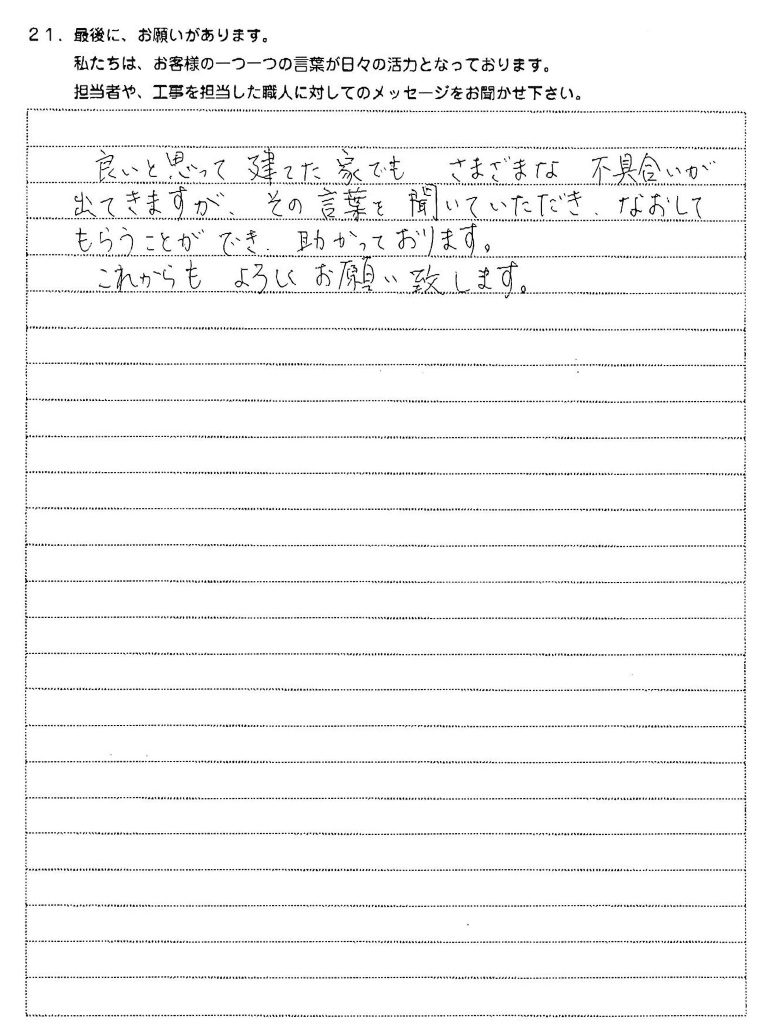 21．最後に、お願いがあります。
私たちは、お客様の一つ一つの言葉が日々の活力となっております。
担当者や、工事を担当した職人に対してのメッセージをお聞かせ下さい。
良いと思って 建てた 家でも さまざまな 不具合いが
出てきますが、その 言葉を 聞いていただき、なおして
もらうことが でき、助かっております。
これからも よろしく お願い 致します。